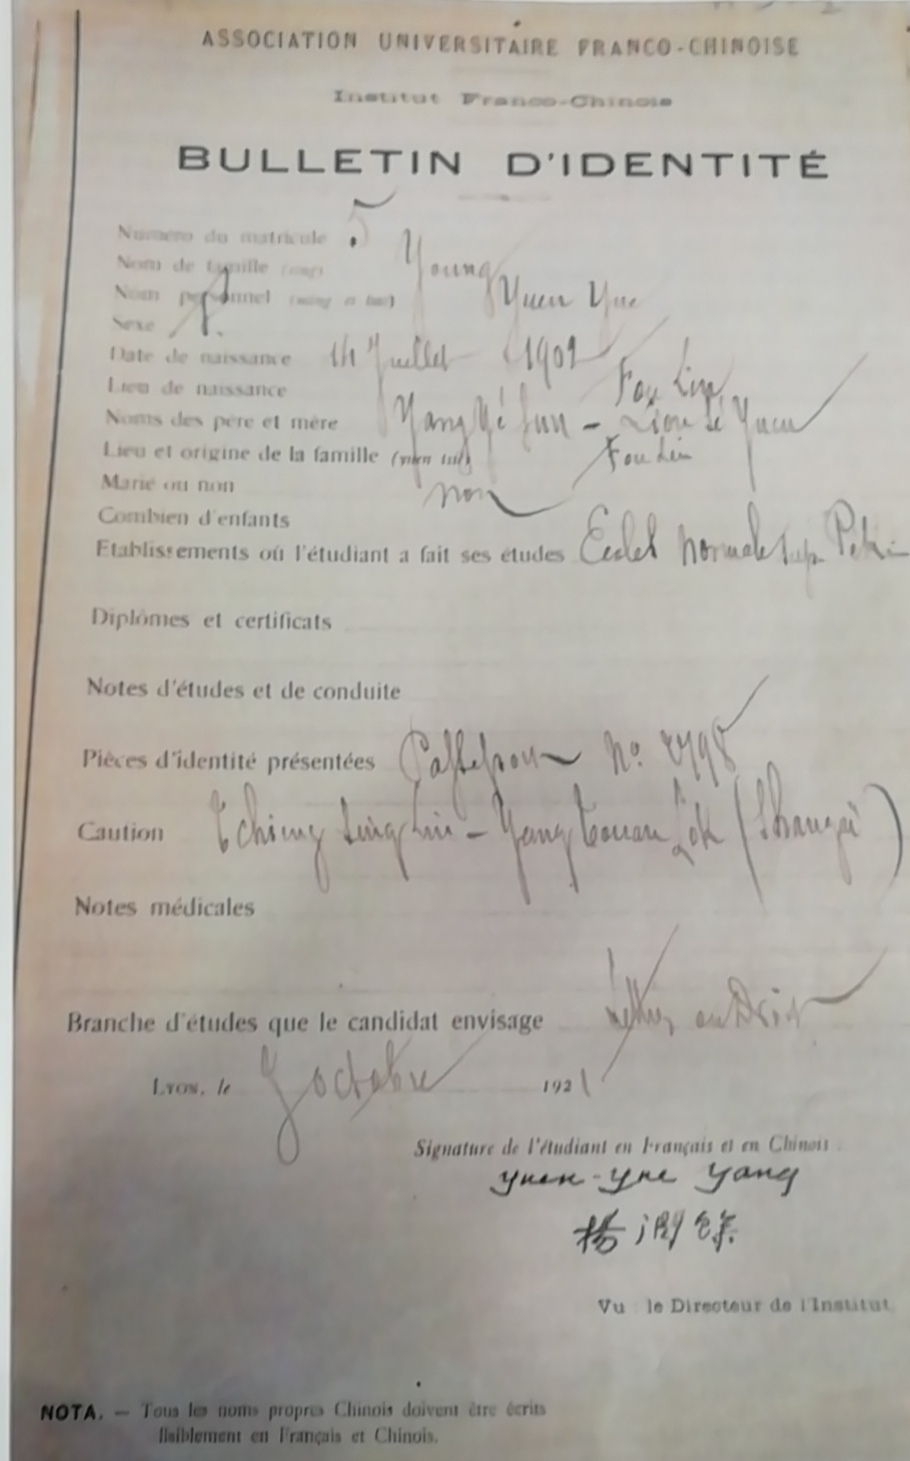 ASSOCIATION UNIVERSITAIRE FRANCO-CHINOISE
Institut Franco-Chinois
BULLETIN D'IDENTITÉ
Numéro du matricule 5
Nom de famille (sing) Young
Nom personnel (ming et tse) Yuen Yue
Sexe f.
Date de naissance 14 Juillet 1901
Lieu de naissance Fou Lin
Noms des père et mère Yang Yé Sun -
Lieu et origine de la famille Fou Lin
Marié ou non non
Combien d'enfants
Etablissements où l'étudiant a fait ses études Ecole normale sup. Pékin
Diplômes et certificats
Notes d'études et de conduite
Pièces d'identité présentées Passeport No.
Caution
Notes médicales
Branche d'études que le candidat envisage Lettres ou Droit
Lyon, le octobre 1921
Signature de l'étudiant en Français et en Chinois
Yuen-Yue Yang
楊潤餘
Vu le Directeur de l'Institut
NOTA. — Tous les noms propres Chinois doivent être écrits
lisiblement en Français et Chinois.